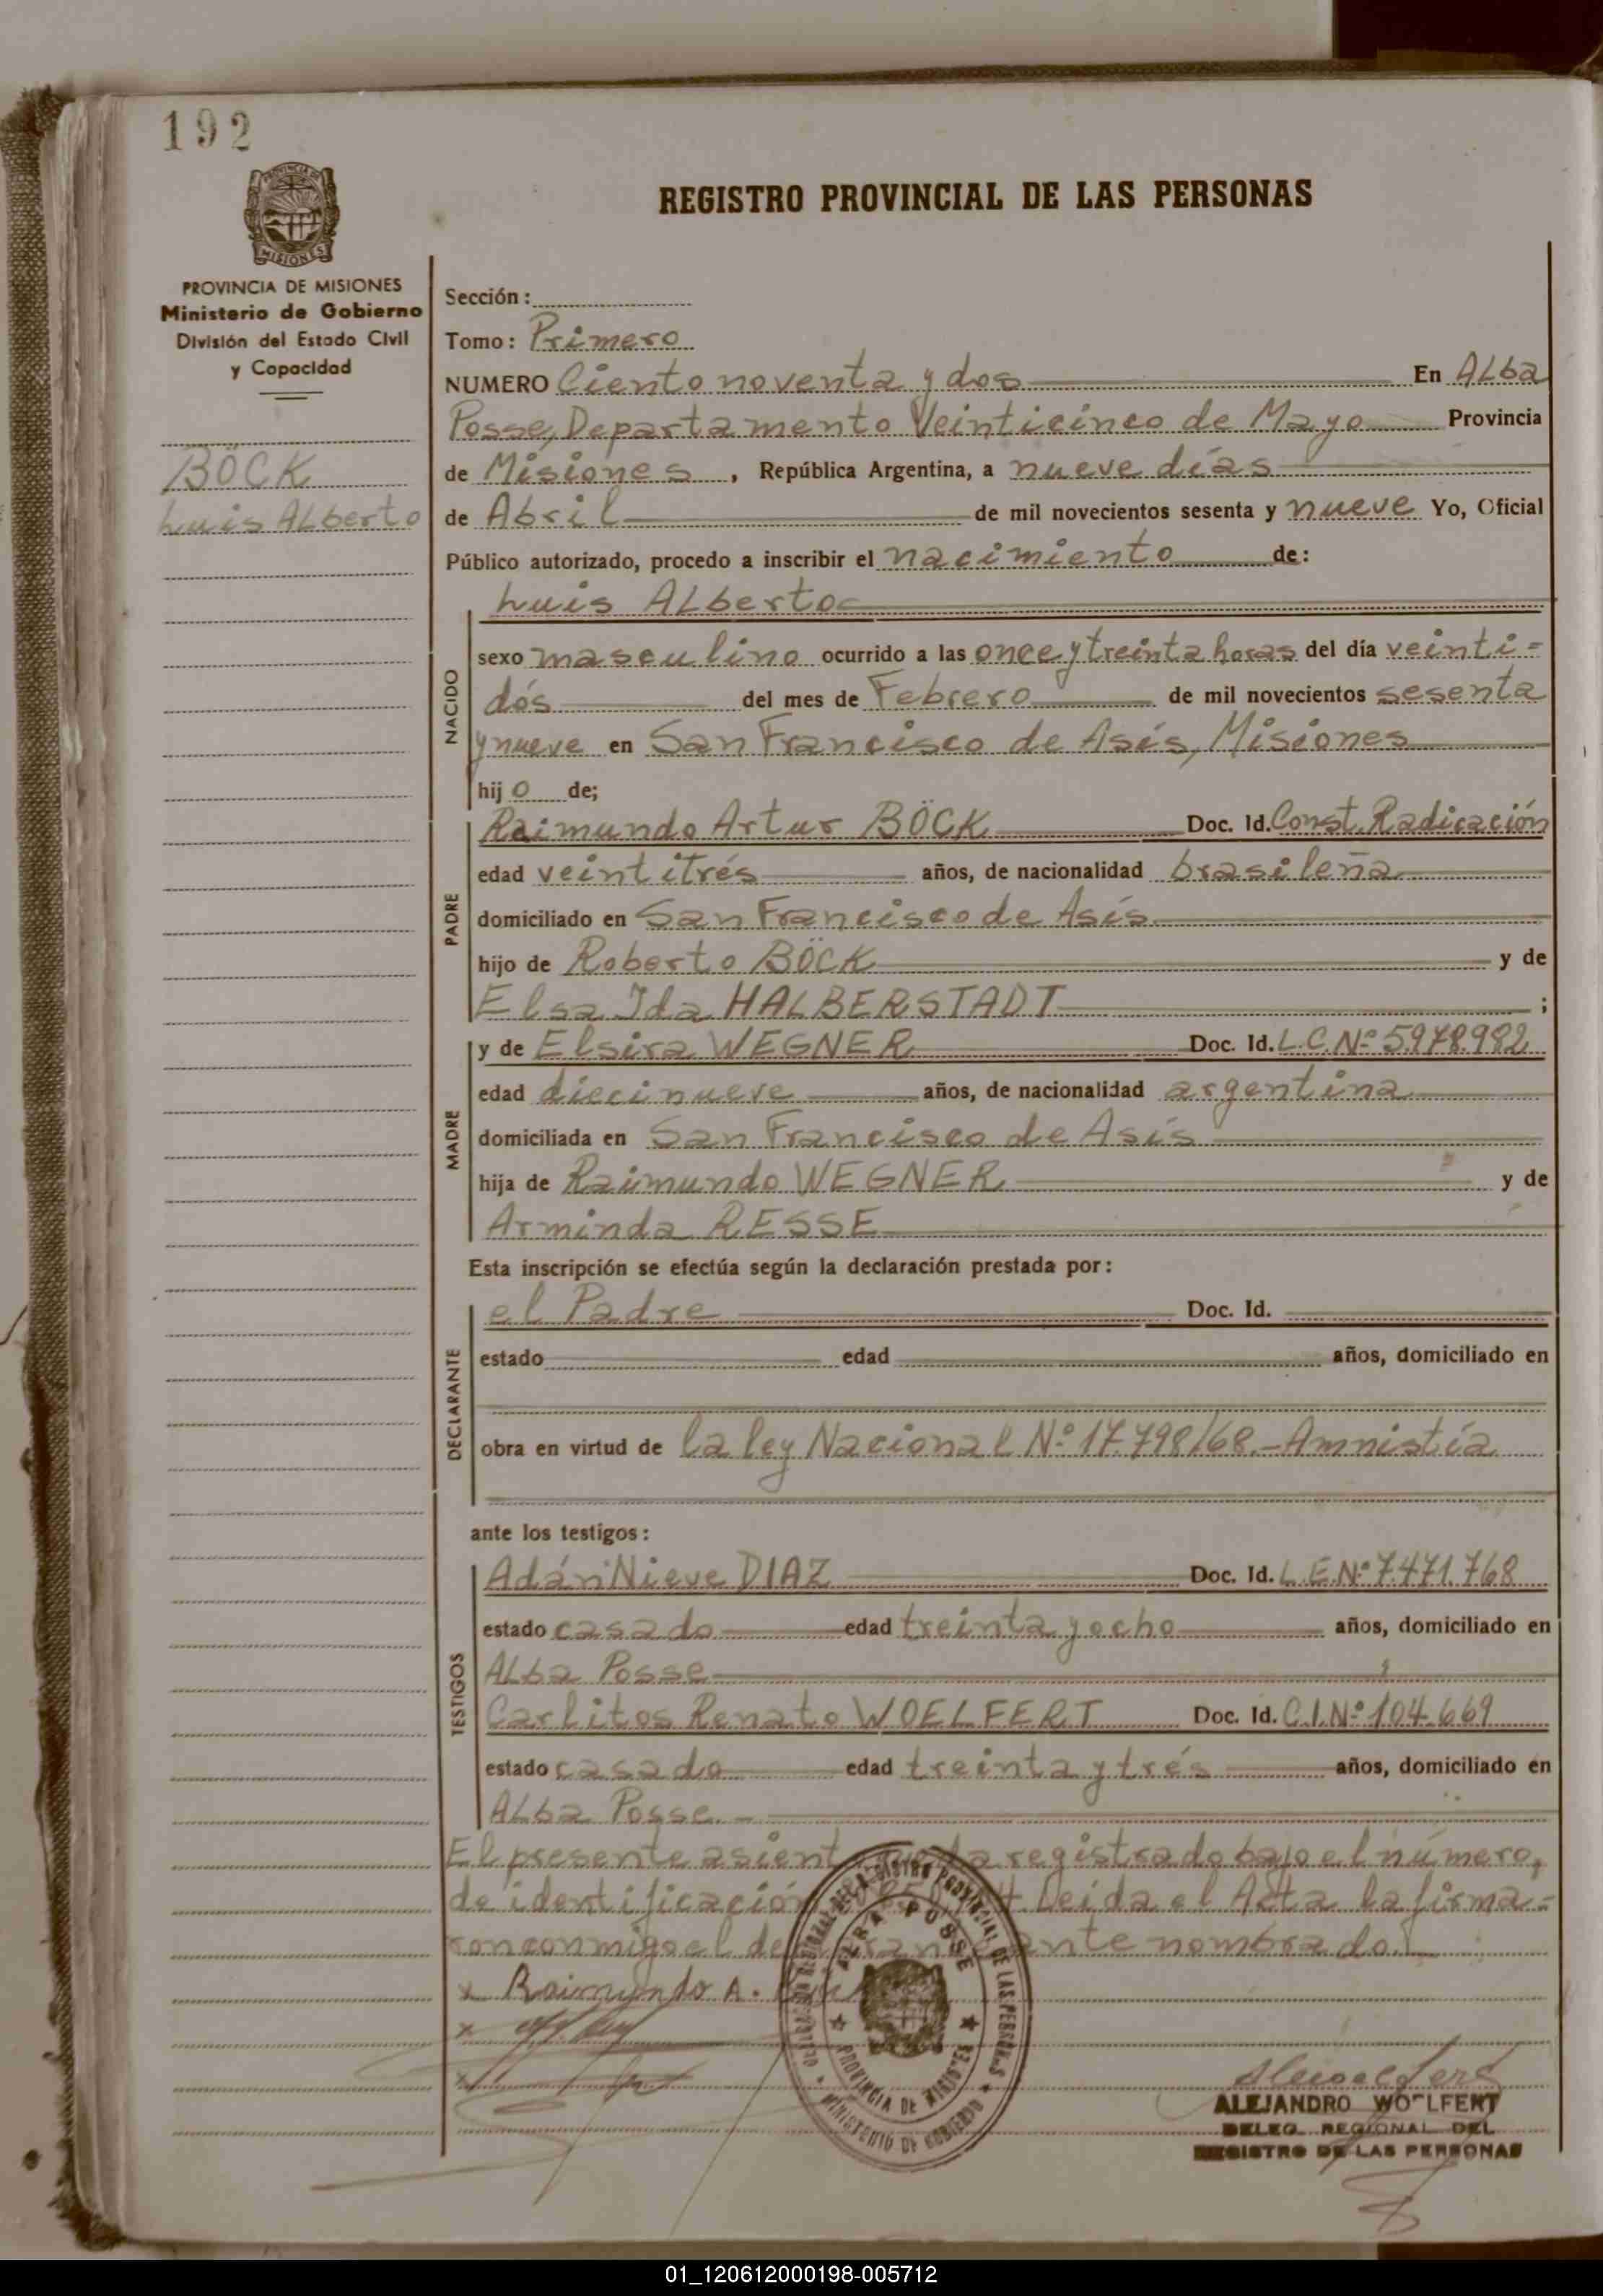 192
REGISTRO PROVINCIAL DE LAS PERSONAS
PROVINCIA DE MISIONES
Ministerio de Gobierno
División del Estado Civil
y Capacidad
BÖCK
Luis ALberto
Sección:
Tomo: Primero
NUMERO Ciento noventa y dos En ALba
Posse, Departamento Veinticinco de Mayo Provincia
de Misiones, República Argentina, a nueve días
de Abril de mil novecientos sesenta y nueve Yo, Oficial
Público autorizado, procedo a inscribir el nacimiento de:
Luis ALberto
NACIDO
sexo masculino ocurrido a las once y treinta horas del día veinti=
dós del mes de Febrero de mil novecientos sesenta
y nueve en San Francisco de Asís, Misiones
hijo de;
PADRE
Raimundo Artur BÖCK Doc. Id. Const. Radicación
edad veintitrés años, de nacionalidad brasileña
domiciliado en San Francisco de Asís
hijo de Roberto BÖCK y de
Elsa Ida HALBERSTADT ;
MADRE
y de Elsira WEGNER Doc. Id. L.C.Nº 5.978.982
edad diecinueve años, de nacionalidad argentina
domiciliada en San Francisco de Asís
hija de Raimundo WEGNER y de
Arminda RESSE
Esta inscripción se efectúa según la declaración prestada por:
DECLARANTE
el Padre Doc. Id.
estado edad años, domiciliado en
obra en virtud de la ley Nacional Nº 17.798/68.-Amnistía
ante los testigos:
TESTIGOS
Adán Nieve DIAZ Doc. Id. L.E.Nº 7.471.768
estado casado edad treinta y ocho años, domiciliado en
ALba Posse
Carlitos Renato WOELFERT Doc. Id. C.I.Nº 104.669
estado casado edad treinta y trés años, domiciliado en
ALba Posse.-
El presente asient registrado bajo el número,
de identificación Leida el Acta la firma=
ron conmigo el ante nombrado.
x Raimundo A.
x
x
ALBA POSSE
PROVINCIA DE MISIONES
MINISTERIO DE GOBIERNO
REGISTRO PROVINCIAL DE LAS PERSONAS
ALEJANDRO WOELFERT
DELEG. REGIONAL DEL
REGISTRO DE LAS PERSONAS
01_120612000198-005712